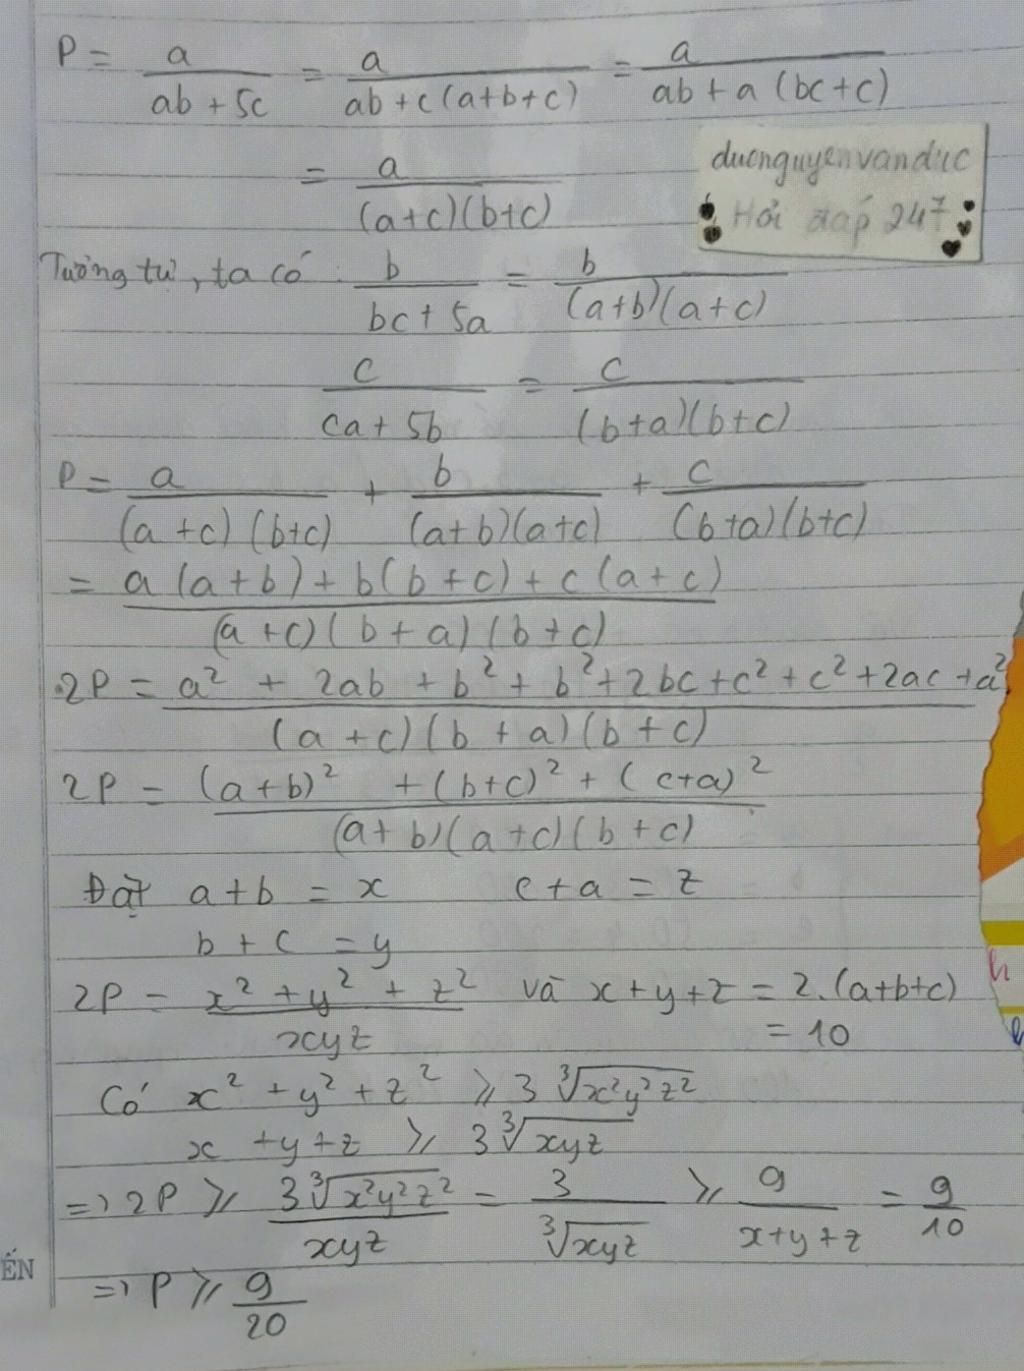 P = a/(ab + 5c) = a/(ab + c(a+b+c)) = a/(ab + a(bc+c))
= a/((a+c)(b+c))
duonguyenvanduc
Hỏi đáp 247
Tương tự, ta có b/(bc + 5a) = b/((a+b)(a+c))
c/(ca + 5b) = c/((b+a)(b+c))
P = a/((a+c)(b+c)) + b/((a+b)(a+c)) + c/((b+a)(b+c))
= (a(a+b) + b(b+c) + c(a+c))/((a+c)(b+a)(b+c))
2P = (a² + 2ab + b² + b² + 2bc + c² + c² + 2ac + a²)/((a+c)(b+a)(b+c))
2P = ((a+b)² + (b+c)² + (c+a)²)/((a+b)(a+c)(b+c))
Đặt a+b = x c+a = z
b+c = y
2P = (x² + y² + z²)/(xyz) và x+y+z = 2.(a+b+c)
= 10
Có x² + y² + z² ⩾ 3∛(x²y²z²)
x + y + z ⩾ 3∛(xyz)
=> 2P ⩾ 3∛(x²y²z²)/(xyz) = 3/∛(xyz) ⩾ 9/(x+y+z) = 9/10
=> P ⩾ 9/20
ẾN